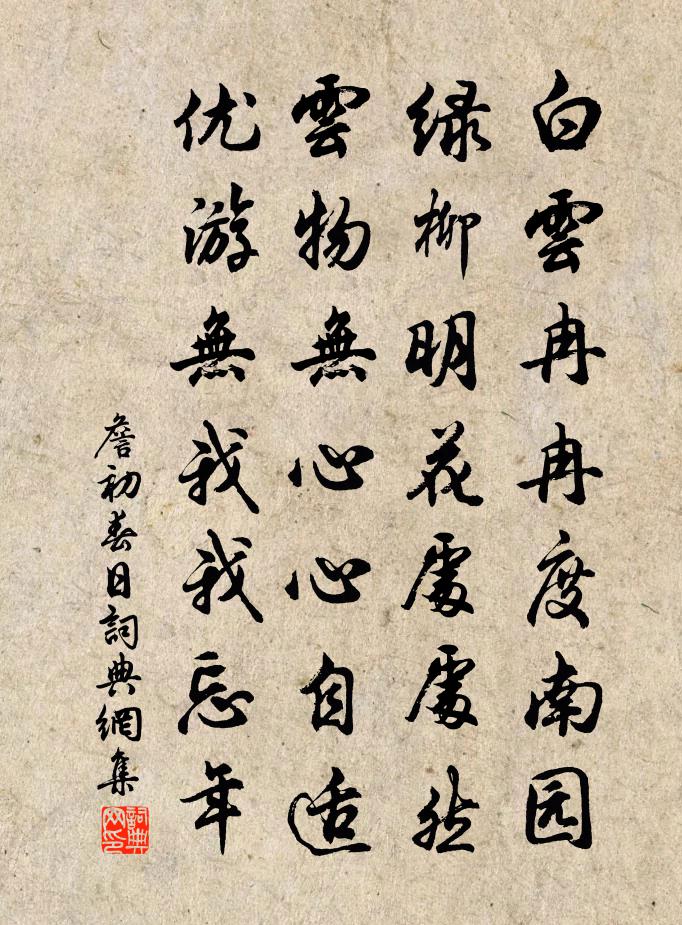 白雲冉冉度南园
绿柳明花處處然
雲物無心心自适
优游無我我忘年
詹初春日詞典網集
詞典網印